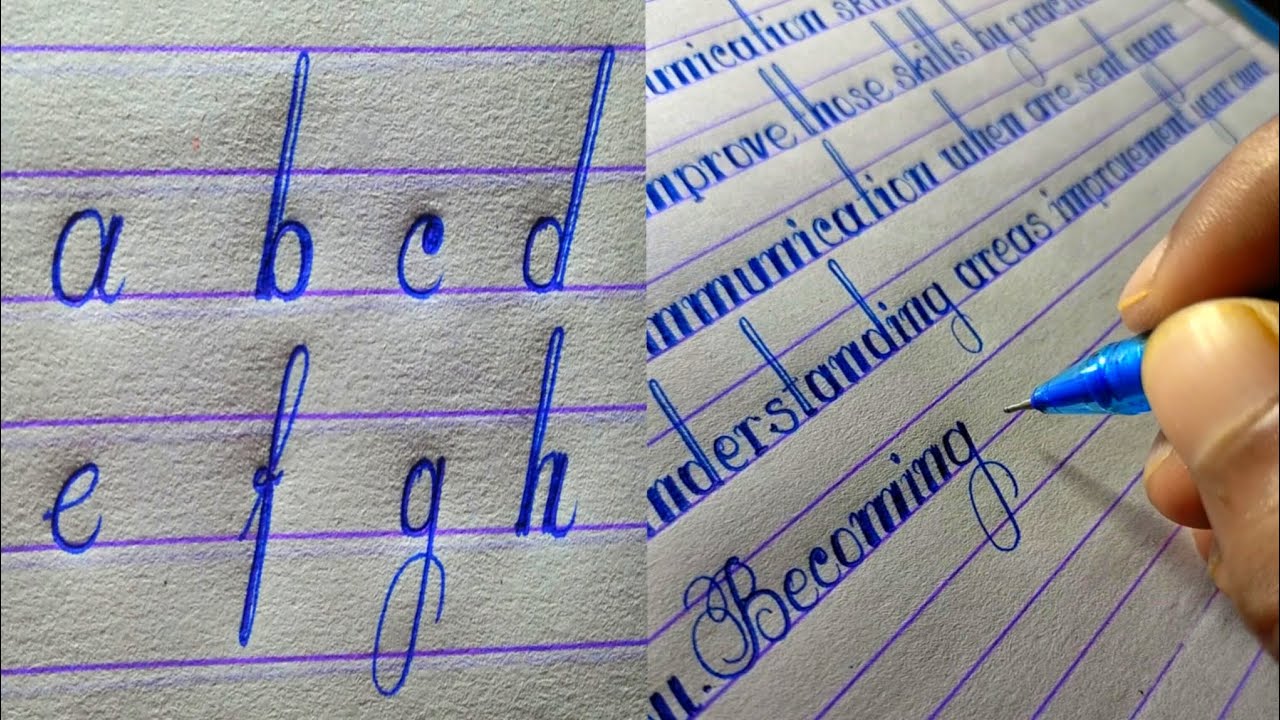 a b c d
e f g h
unication skil
mprove those skills by practi
mmunication when are sent your
nderstanding areas improvement your
u. Becoming